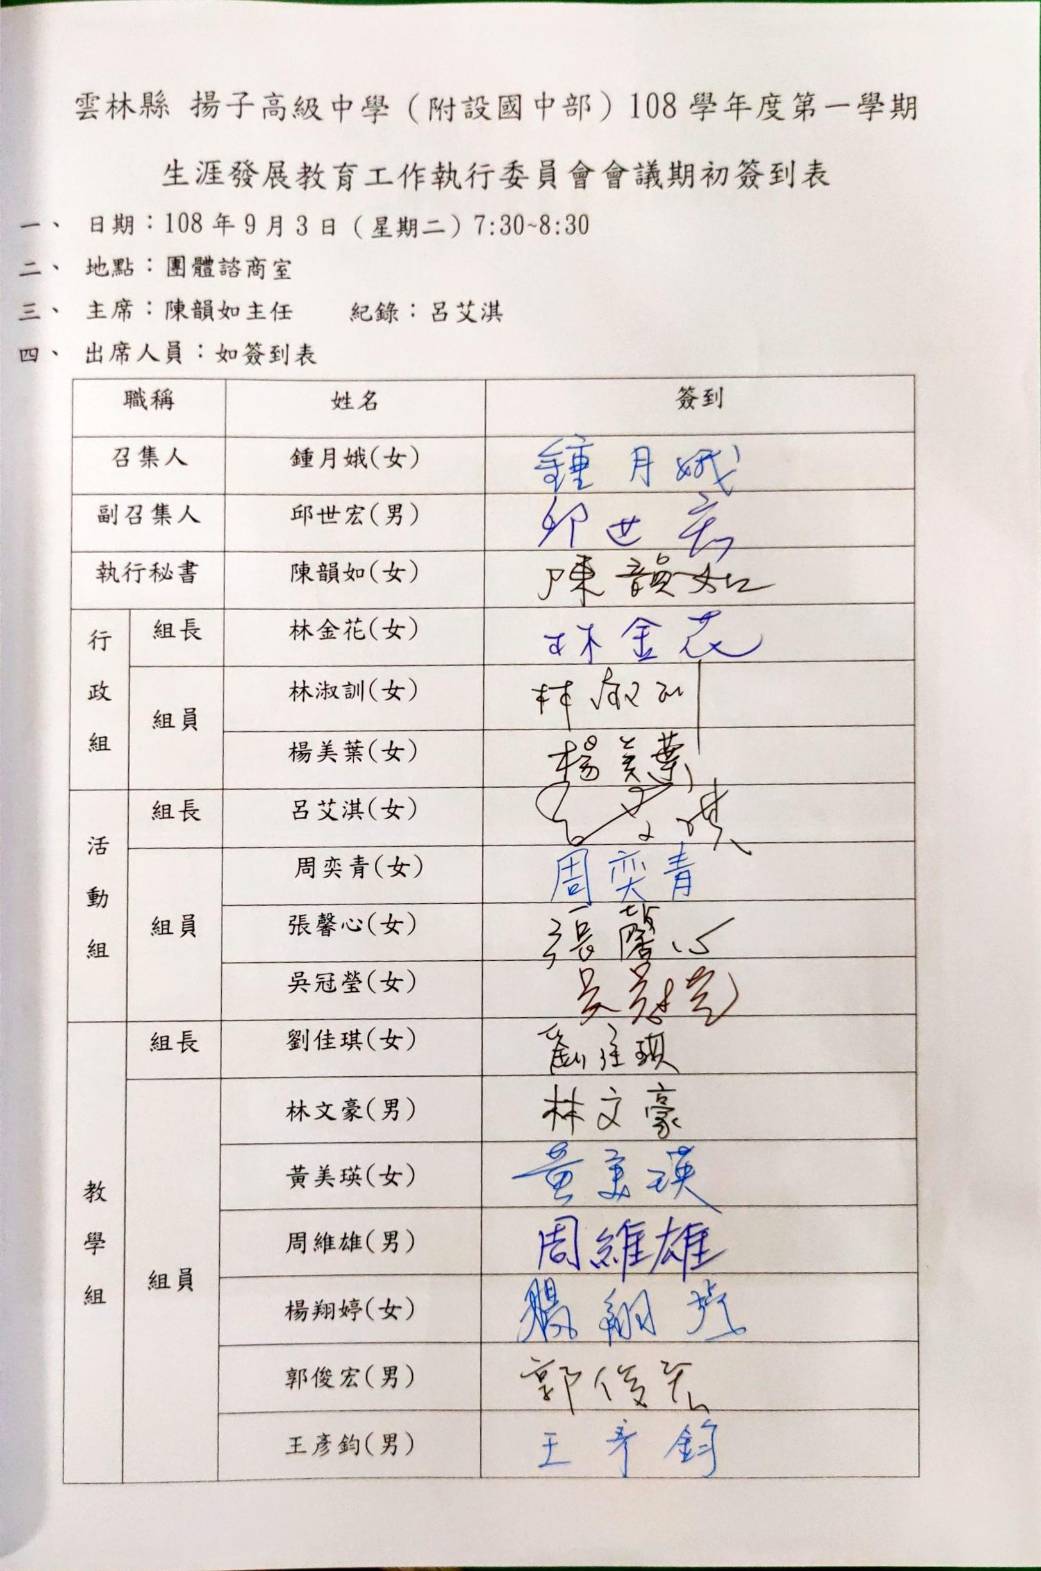 雲林縣 揚子高級中學（附設國中部）108 學年度第一學期
生涯發展教育工作執行委員會會議期初簽到表
一、 日期：108 年 9 月 3 日（星期二）7:30~8:30
二、 地點：團體諮商室
三、 主席：陳韻如主任 紀錄：呂艾淇
四、 出席人員：如簽到表
職稱 姓名 簽到
召集人 鍾月娥(女) 鍾月娥
副召集人 邱世宏(男) 邱世宏
執行秘書 陳韻如(女) 陳韻如
行政組 組長 林金花(女) 林金花
組員 林淑訓(女) 林淑訓
楊美葉(女) 楊美葉
活動組 組長 呂艾淇(女) 呂艾淇
組員 周奕青(女) 周奕青
張馨心(女) 張馨心
吳冠瑩(女) 吳冠瑩
教學組 組長 劉佳琪(女) 劉佳琪
組員 林文豪(男) 林文豪
黃美瑛(女) 黃美瑛
周維雄(男) 周維雄
楊翔婷(女) 楊翔婷
郭俊宏(男) 郭俊宏
王彥鈞(男) 王彥鈞